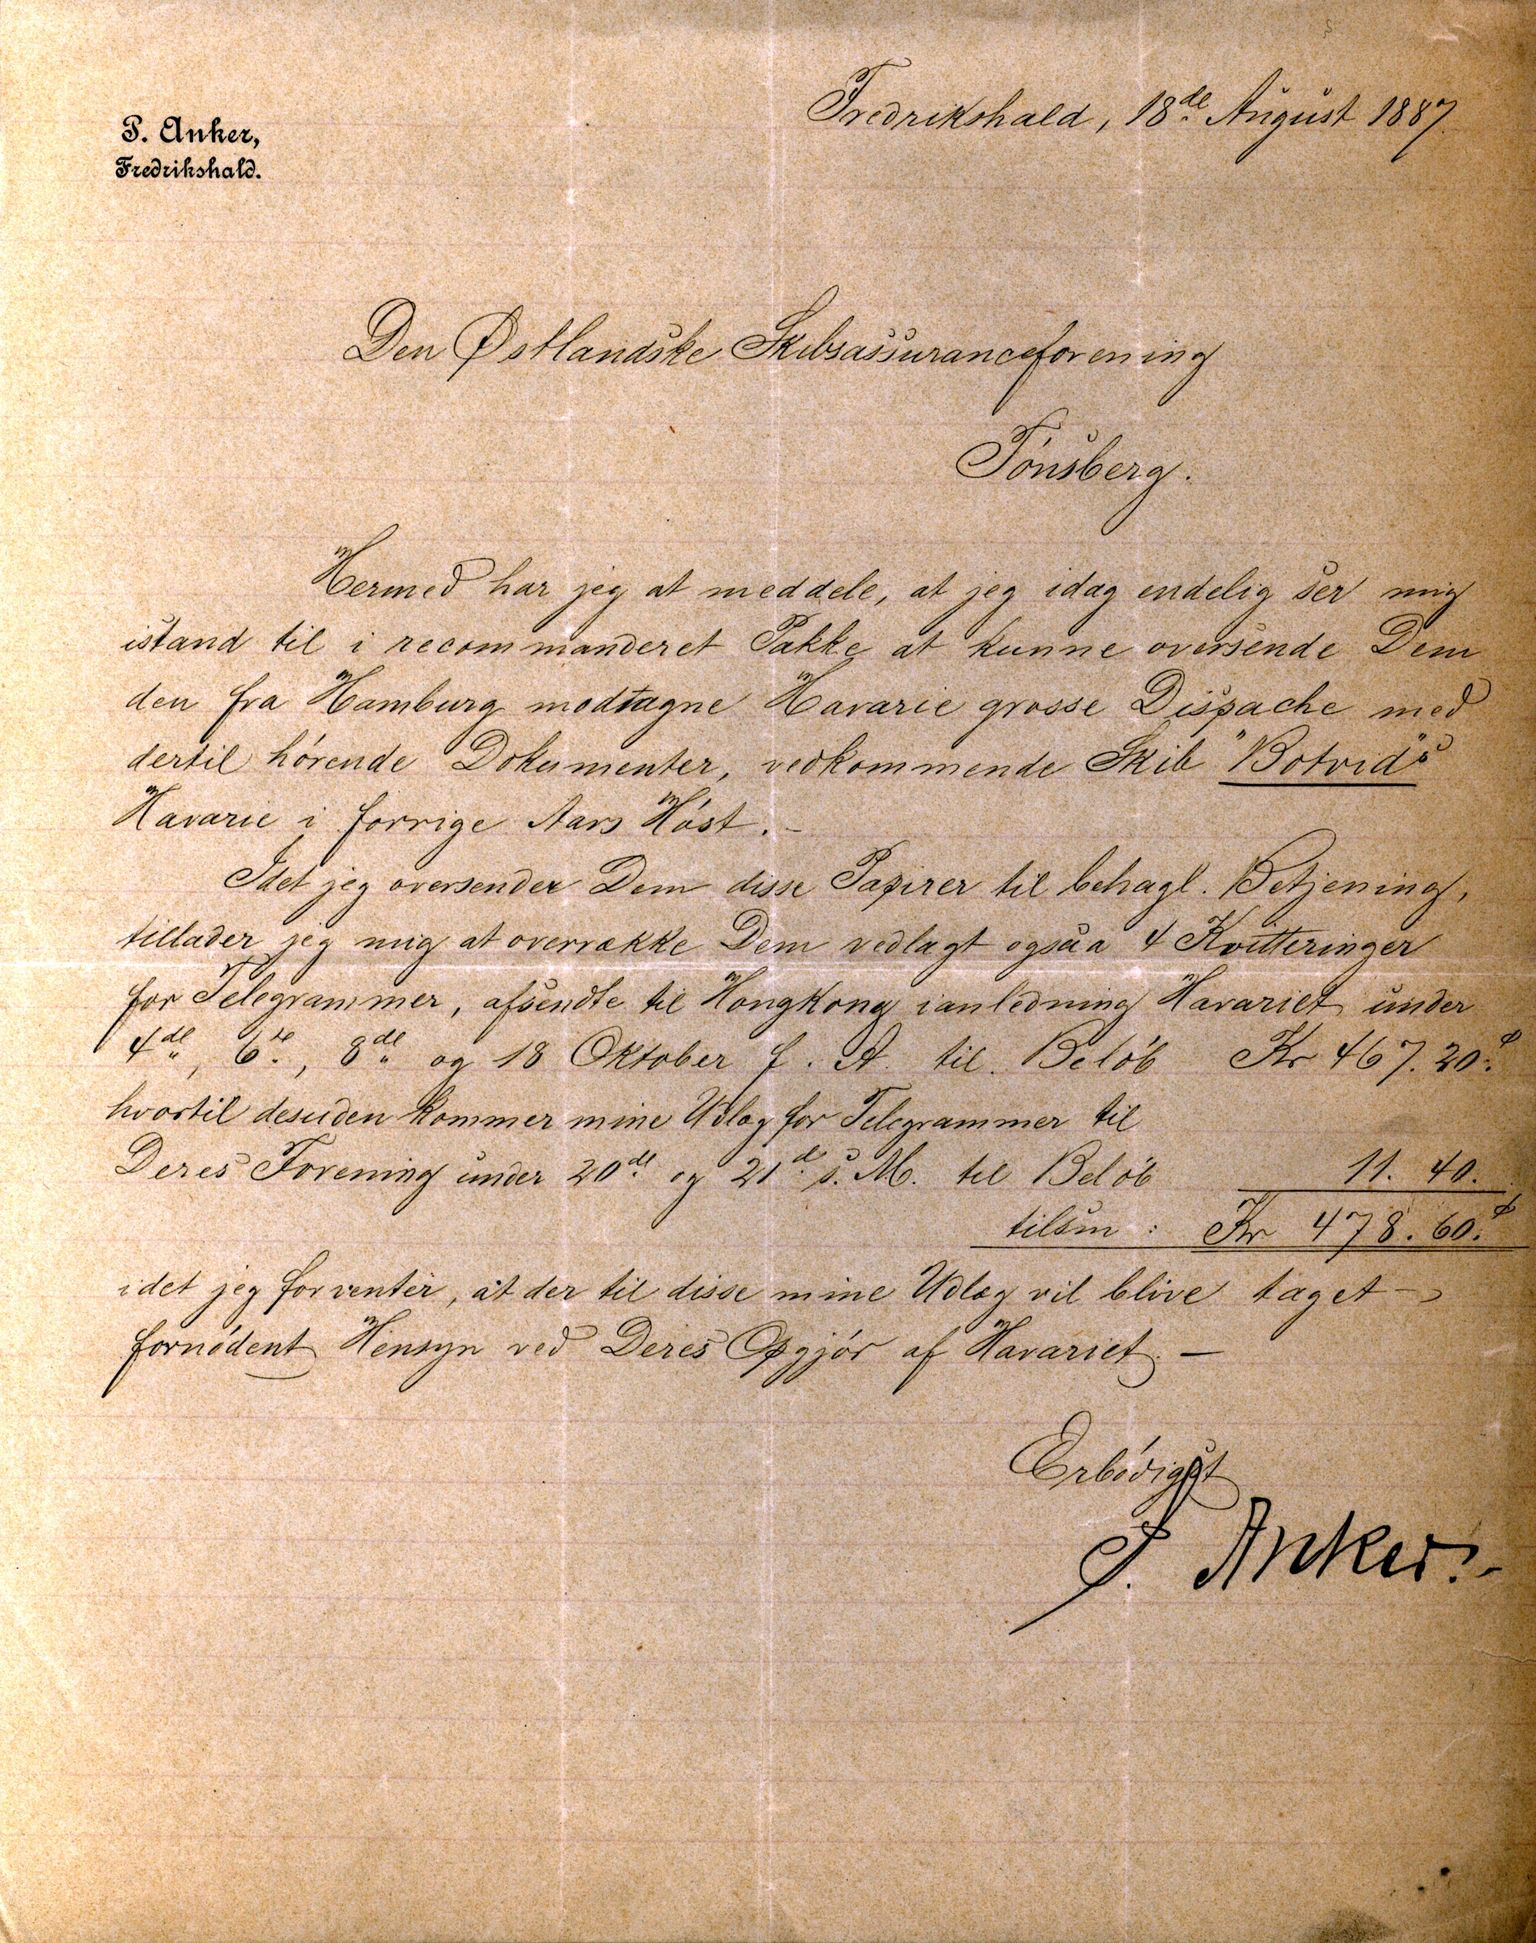 P. Anker,
Fredrikshald.
Fredrikshald, 18de August 1887
Den Østlandske Skibsassuranceforening
Tónsberg.
Hermed har jeg at meddele, at jeg idag endelig ser mig
istand til i recommanderet Pakke at kunne oversende Dem
den fra Hamburg modtagne Havarie grosse Dispache med
dertil hórende Dokumenter, vedkommende Skib "Botvid"s
Havarie i forrige Aars Hóst. –
Idet jeg oversender Dem disse Papirer til behagl. Betjening,
tillader jeg mig at overrække Dem vedlagt ogsaa 4 Kvitteringer
for Telegrammer, afsendte til Hongkong ianledning Havariet under
4de, 6te, 8de og 18 Oktober f. A. til Belób Kr 467.20.
hvortil desuden kommer mine Udlæg for Telegrammer til
Deres Forening under 20de og 21de s. M. til Belób 11. 40.
tilsm : Kr 478.60.
idet jeg forventer, at der til disse mine Udlæg vil blive taget
fornódent Hensyn ved Deres Opgjór af Havariet. –
Erbódigst
P. Anker.